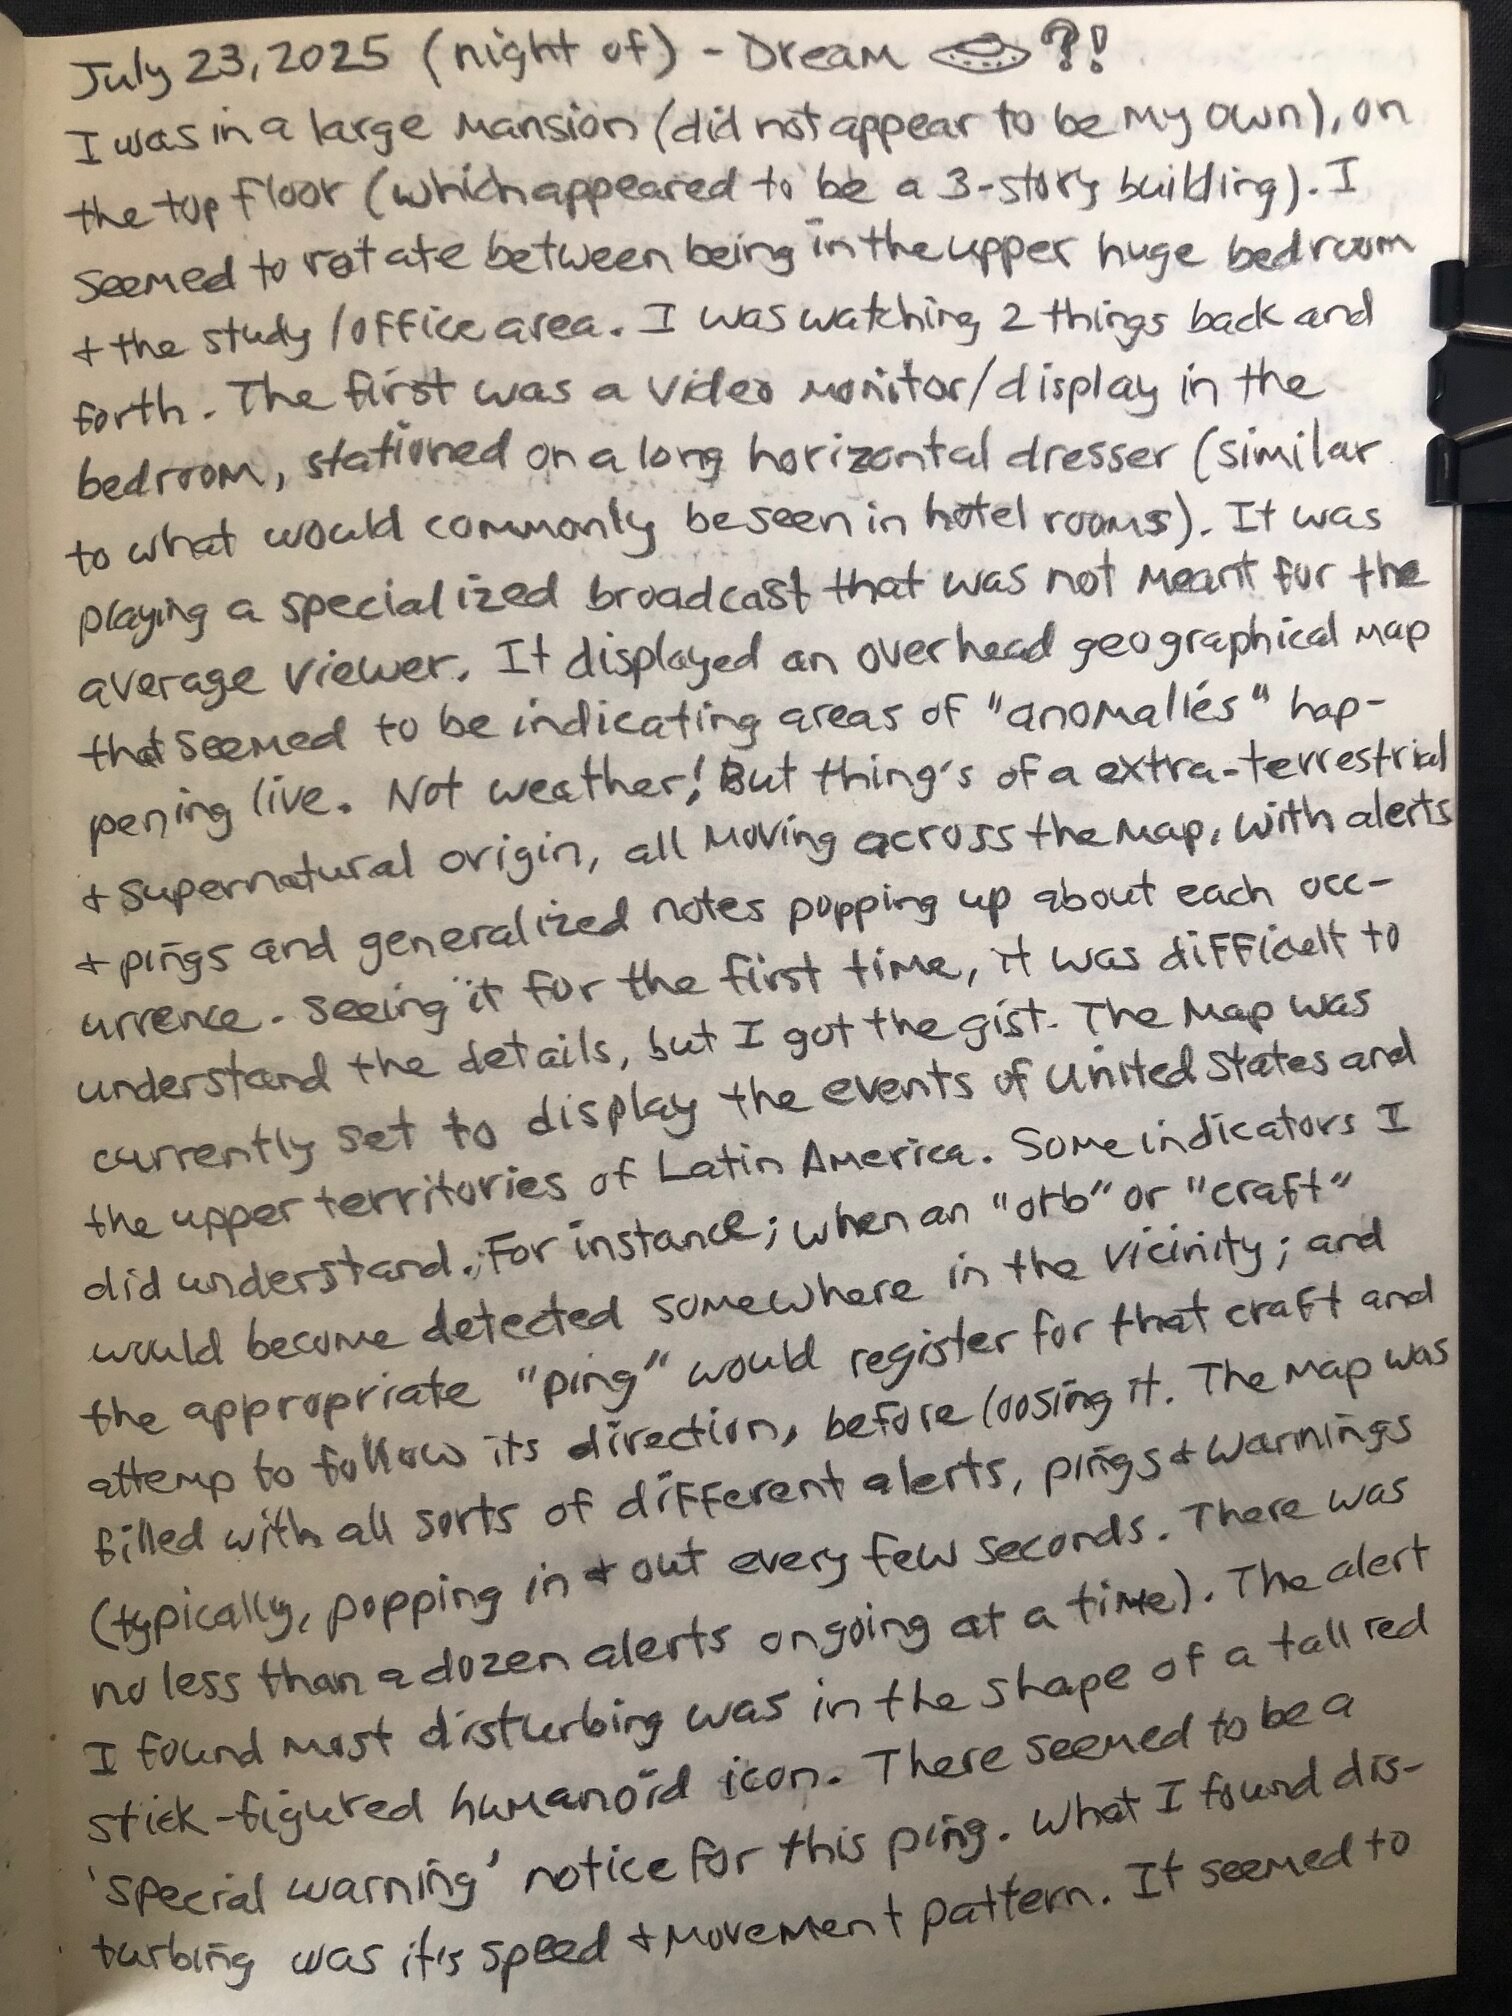 July 23, 2025 (night of) - Dream ?!
I was in a large mansion (did not appear to be my own), on
the top floor (which appeared to be a 3-story building). I
seemed to rotate between being in the upper huge bedroom
+ the study/office area. I was watching 2 things back and
forth. The first was a video monitor/display in the
bedroom, stationed on a long horizontal dresser (similar
to what would commonly be seen in hotel rooms). It was
playing a specialized broadcast that was not meant for the
average viewer. It displayed an overhead geographical map
that seemed to be indicating areas of "anomalies" hap-
pening live. Not weather! But thing's of a extra-terrestrial
+ supernatural origin, all moving across the map, with alerts
+ pings and generalized notes popping up about each occ-
urrence. Seeing it for the first time, it was difficult to
understand the details, but I got the gist. The map was
currently set to display the events of United States and
the upper territories of Latin America. Some indicators I
did understand. For instance; when an "orb" or "craft"
would become detected somewhere in the vicinity; and
the appropriate "ping" would register for that craft and
attemp to follow its direction, before loosing it. The map was
filled with all sorts of different alerts, pings + warnings
(typically, popping in + out every few seconds. There was
no less than a dozen alerts ongoing at a time). The alert
I found most disturbing was in the shape of a tall red
stick-figured humanoid icon. There seemed to be a
'special warning' notice for this ping. What I found dis-
turbing was it's speed + movement pattern. It seemed to